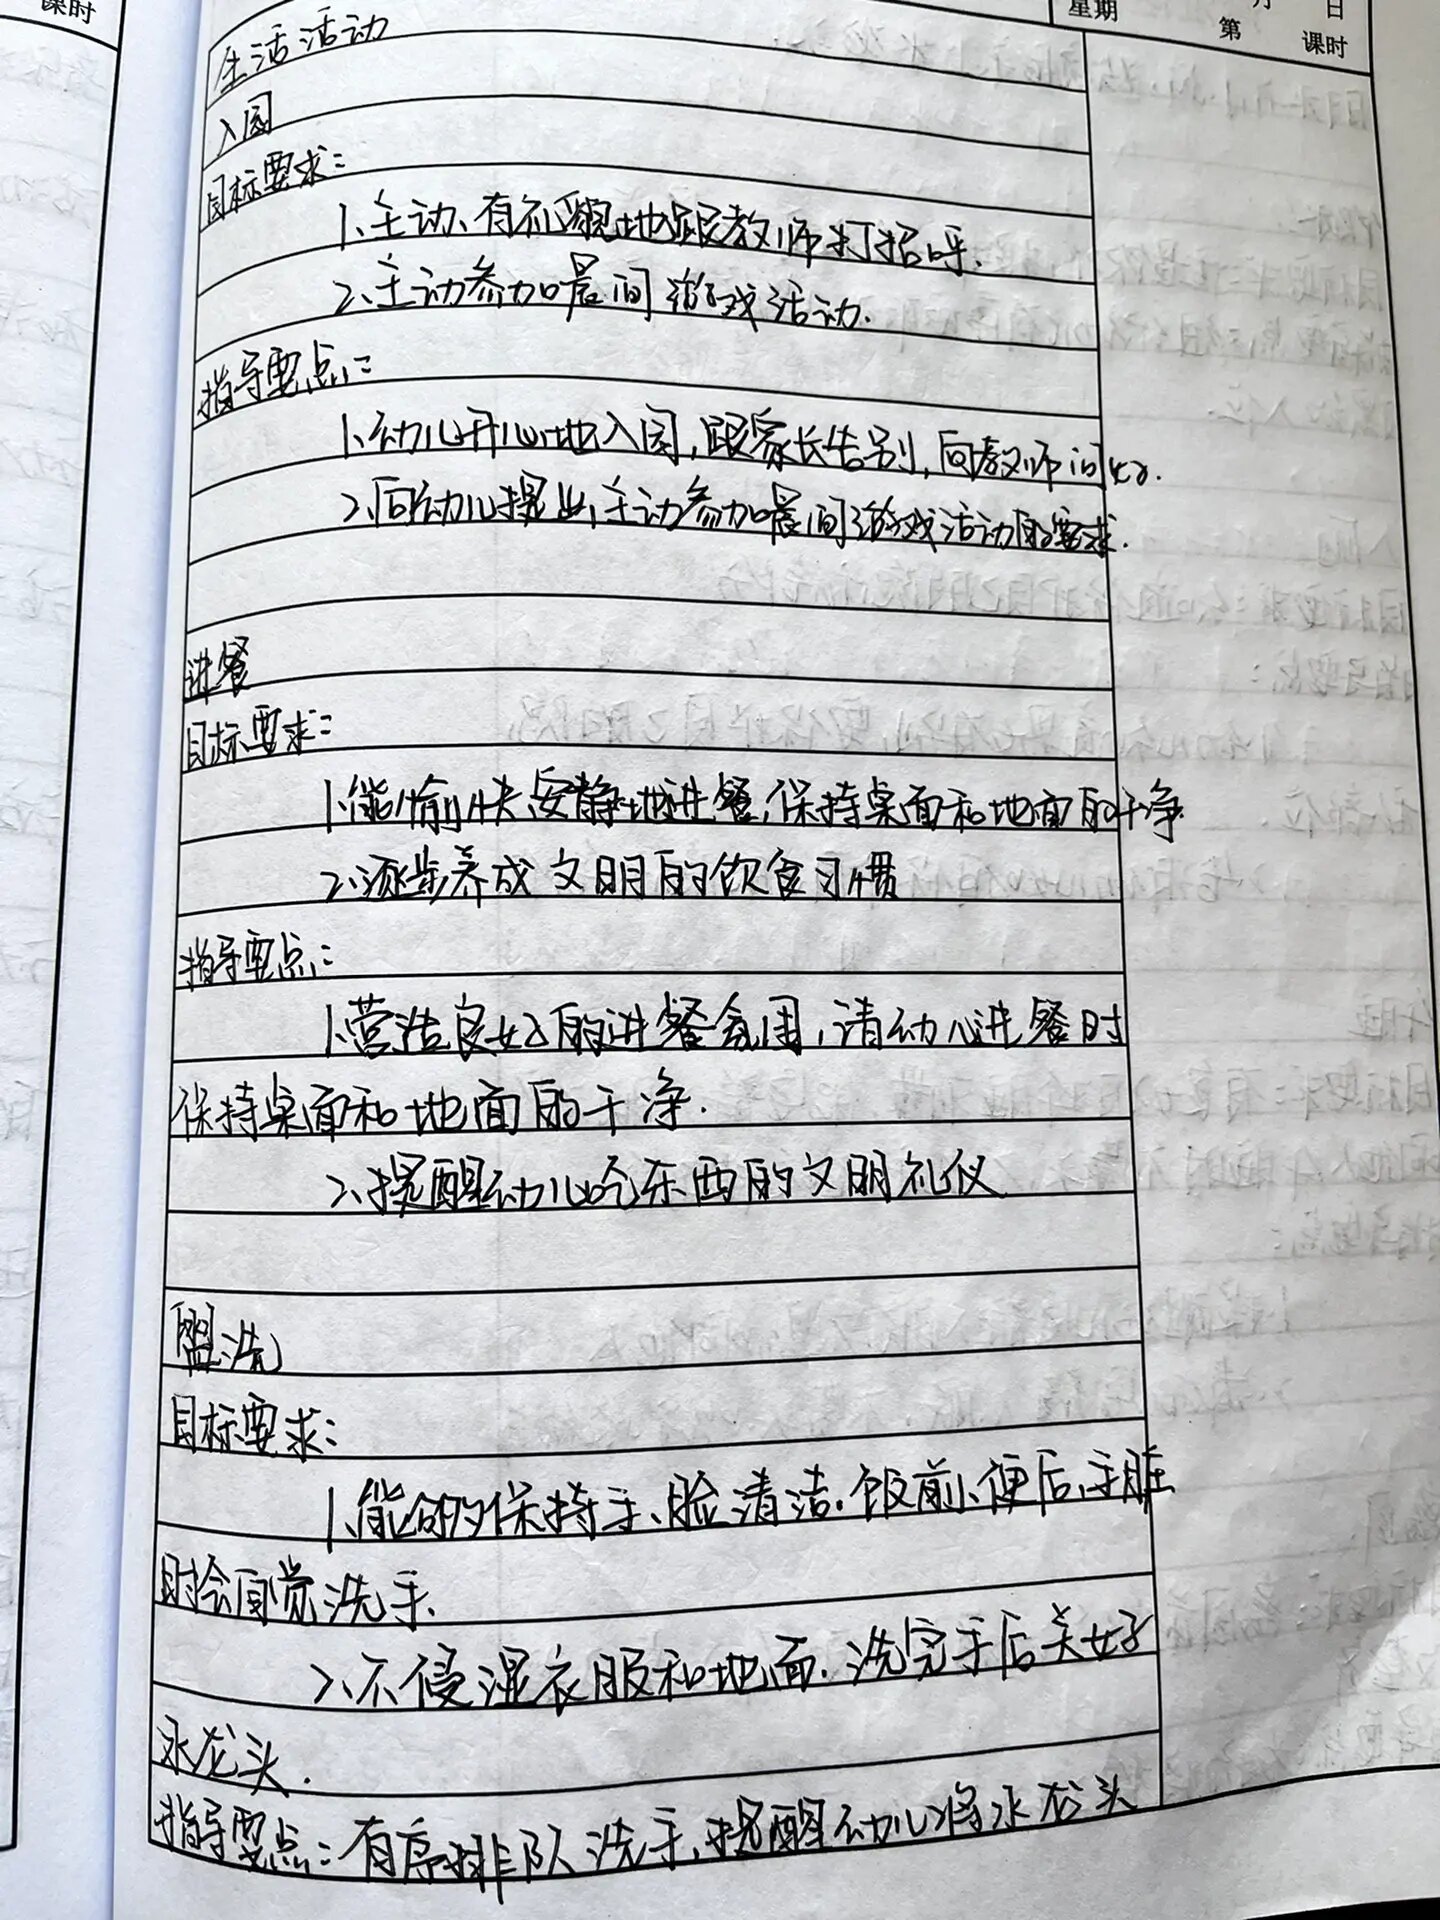 课时
星期 月 日
第 课时
生活活动
入园
目标要求:
1、主动、有礼貌地跟教师打招呼.
2、主动参加晨间游戏活动.
指导要点:
1、幼儿开心地入园,跟家长告别,向教师问好.
2、向幼儿提出主动参加晨间游戏活动的要求.
进餐
目标要求:
1、能愉快安静地进餐,保持桌面和地面的干净.
2、逐步养成文明的饮食习惯
指导要点:
1、营造良好的进餐氛围,请幼儿进餐时
保持桌面和地面的干净.
2、提醒幼儿吃东西的文明礼仪
盥洗
目标要求:
1、能够的保持手、脸清洁.饭前、便后、手脏
时会自觉洗手.
2、不侵湿衣服和地面.洗完手后关好
水龙头.
指导要点:有序排队洗手,提醒幼儿将水龙头